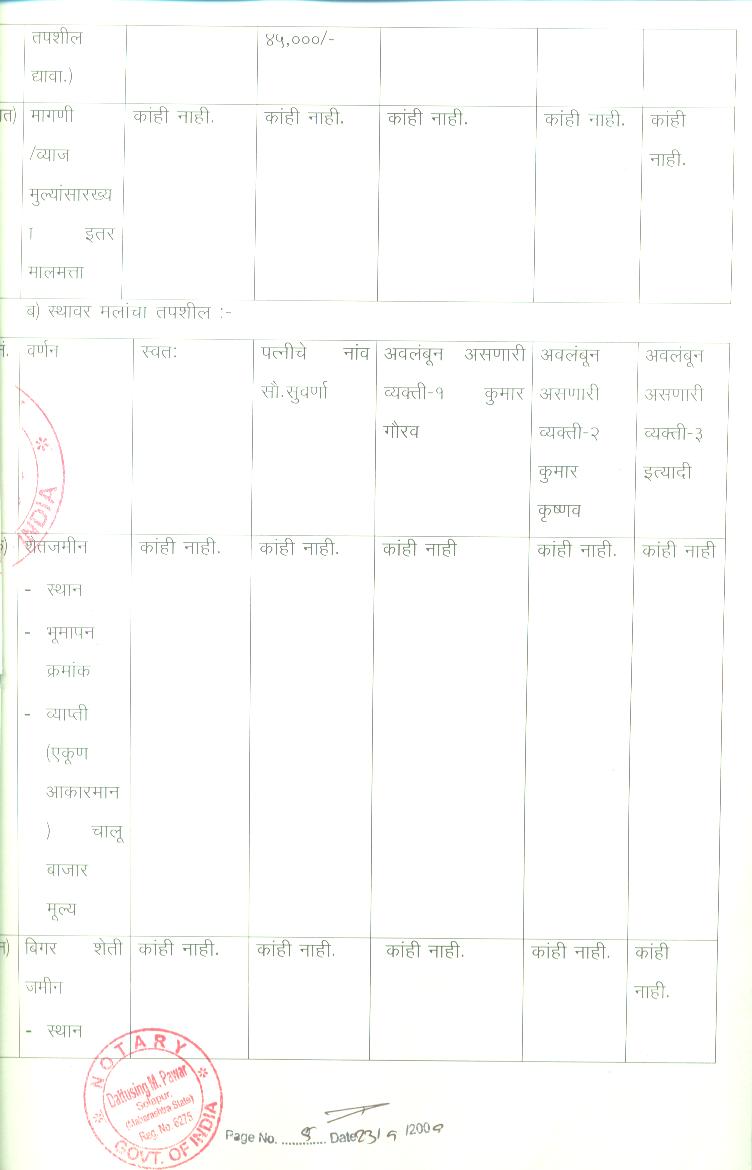 तपशील ४५,०००/-
द्यावा.)
त) मागणी कांही नाही. कांही नाही. कांही नाही. कांही नाही. कांही
/व्याज नाही.
मुल्यांसारख्य
ा इतर
मालमत्ता
ब) स्थावर मलांचा तपशील :-
वर्णन स्वत: पत्नीचे नांव अवलंबून असणारी अवलंबून अवलंबून
सौ.सुवर्णा व्यक्ती-१ कुमार असणारी असणारी
गौरव व्यक्ती-२ व्यक्ती-३
कुमार इत्यादी
कृष्णव
शेतजमीन कांही नाही. कांही नाही. कांही नाही कांही नाही. कांही नाही
- स्थान
- भूमापन
क्रमांक
- व्याप्ती
(एकूण
आकारमान
) चालू
बाजार
मूल्य
बिगर शेती कांही नाही. कांही नाही. कांही नाही. कांही नाही. कांही
जमीन नाही.
- स्थान
INDIA
NOTARY
Dattusing M. Pawar
Solapur.
(Maharashtra State)
Reg. No. 6275
GOVT. OF INDIA
Page No. Date 23/9 /2009